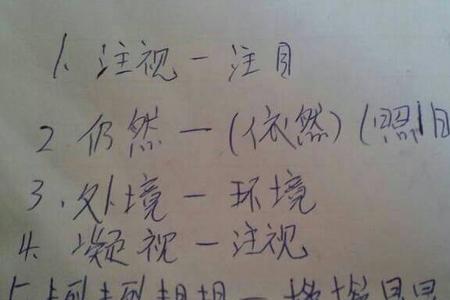 1、注视一注目
2 仍然一(依然)(照旧
3、处境一环境
4、凝视一注视